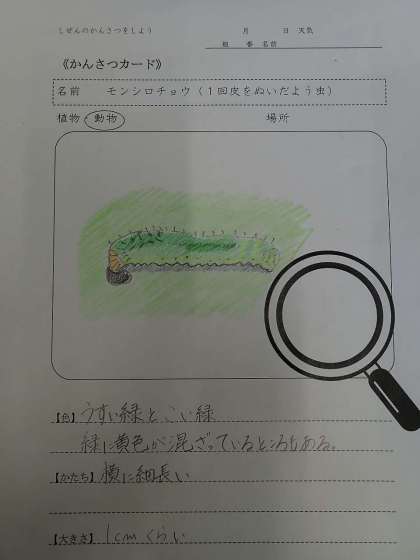 しぜんのかんさつをしよう　月　日　天気
組　番　名前
《かんさつカード》
名前　モンシロチョウ（1回皮をぬいだよう虫）
植物・動物　場所
【色】うすい緑と こい緑
緑に黄色が混ざっているところもある。
【かたち】横に細長い
【大きさ】1cmくらい